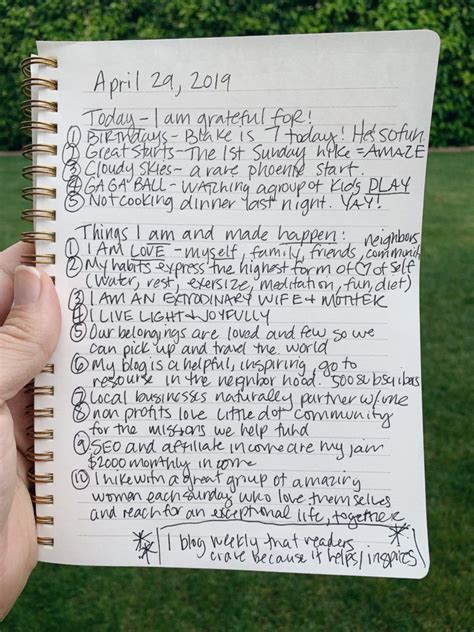 April 29, 2019
Today - I am grateful for!
① Birthdays - Blake is 7 today! He's so fun.
② Great starts - The 1st Sunday hike = AMAZE
③ Cloudy skies - a rare phoenix start.
④ GAGA BALL - watching a group of kids PLAY
⑤ Not cooking dinner last night. YAY!
Things I am and made happen:
① I Am LOVE - myself, family, friends, neighbors community
② My habits express the highest form of ♡ of self
(water, rest, exersize, meditation, fun, diet)
③ I AM AN EXTRODINARY WIFE + MOTHER
④ I LIVE LIGHT & JOYFULLY
⑤ Our belongings are loved and few so we
can pick up and travel the world
⑥ My blog is a helpful, inspiring, go to
resourse in the neighborhood. 500 subscribers
⑦ Local businesses naturally partner w/me
⑧ non profits love little dot community
for the missions we help fund
⑨ SEO and affiliate income are my jam
$2000 monthly in come
⑩ I hike with a great group of amazing
women each Sunday who love themselves
and reach for an exceptional life, together
I blog weekly that readers
crave because it helps/inspires